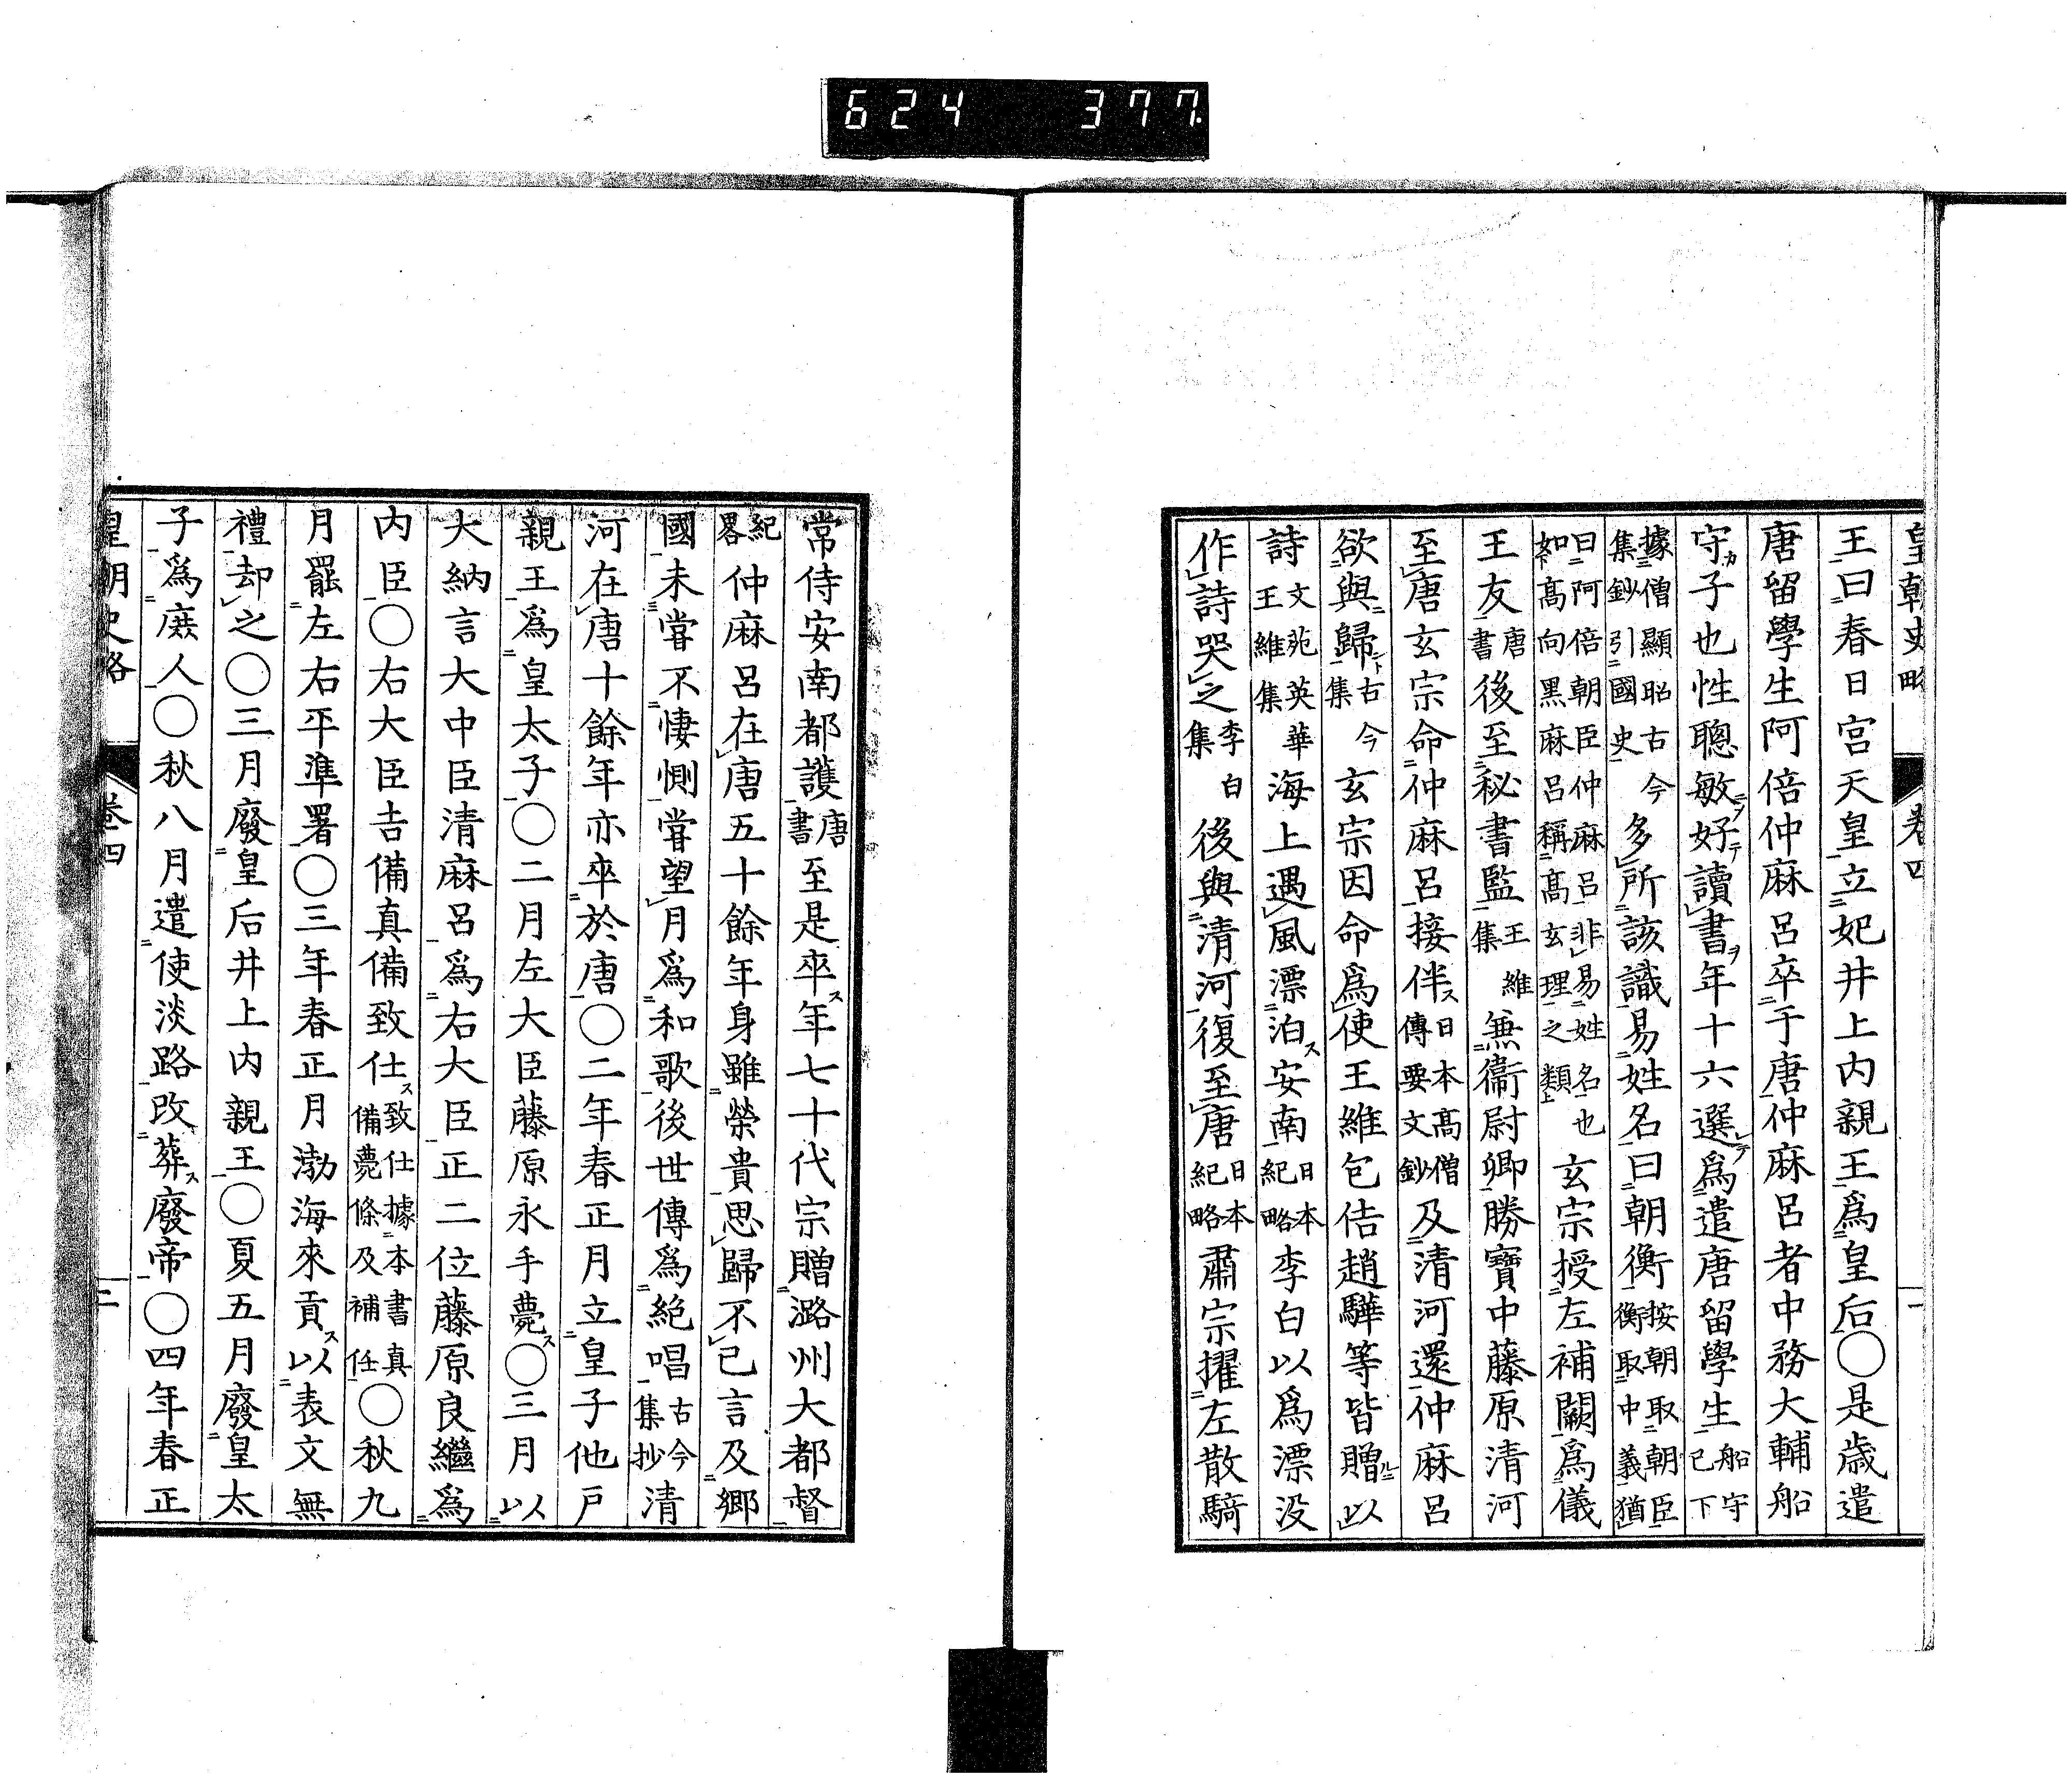 624 377
皇朝史略 卷四 一
王曰春日宮天皇立妃井上內親王爲皇后〇是歲遣
唐留學生阿倍仲麻呂卒于唐仲麻呂者中務大輔船
守カ子也性聰敏ニヲ好テ讀書ヲ年十六選レテ爲遣唐留學生船守已下
據僧顯昭古今集鈔引國史多所該識易姓名曰朝衡按朝取朝臣衡取中義猶
曰阿倍朝臣仲麻呂非易姓名也如下高向黑麻呂稱高玄理之類上玄宗授左補闕爲儀
王友唐書後至秘書監王維集無衞尉卿勝寶中藤原清河
至唐玄宗命仲麻呂接伴ス日本高僧傳要文鈔及清河還仲麻呂
欲與歸ト古今集玄宗因命爲使王維包佶趙驊等皆贈ルニ以
詩文苑英華王維集海上遇風漂泊ス安南日本紀略李白以爲漂没
作詩哭之李白集後與清河復至唐日本紀略肅宗擢左散騎
常侍安南都護唐書至是卒ス年七十代宗贈潞州大都督
紀畧仲麻呂在唐五十餘年身雖榮貴思歸不已言及鄉
國未嘗不悽惻嘗望月爲和歌後世傳爲絕唱古今集抄清
河在唐十餘年亦卒於唐〇二年春正月立皇子他戸
親王爲皇太子〇二月左大臣藤原永手薨ス〇三月以
大納言大中臣清麻呂爲右大臣正二位藤原良繼爲
内臣〇右大臣吉備真備致仕ス致仕據本書真備薨條及補任〇秋九
月罷左右平準署〇三年春正月渤海來貢ス以表文無
禮却之〇三月廢皇后井上内親王〇夏五月廢皇太
子爲庶人〇秋八月遣使淡路改葬ス廢帝〇四年春正
皇朝史略 卷四 二